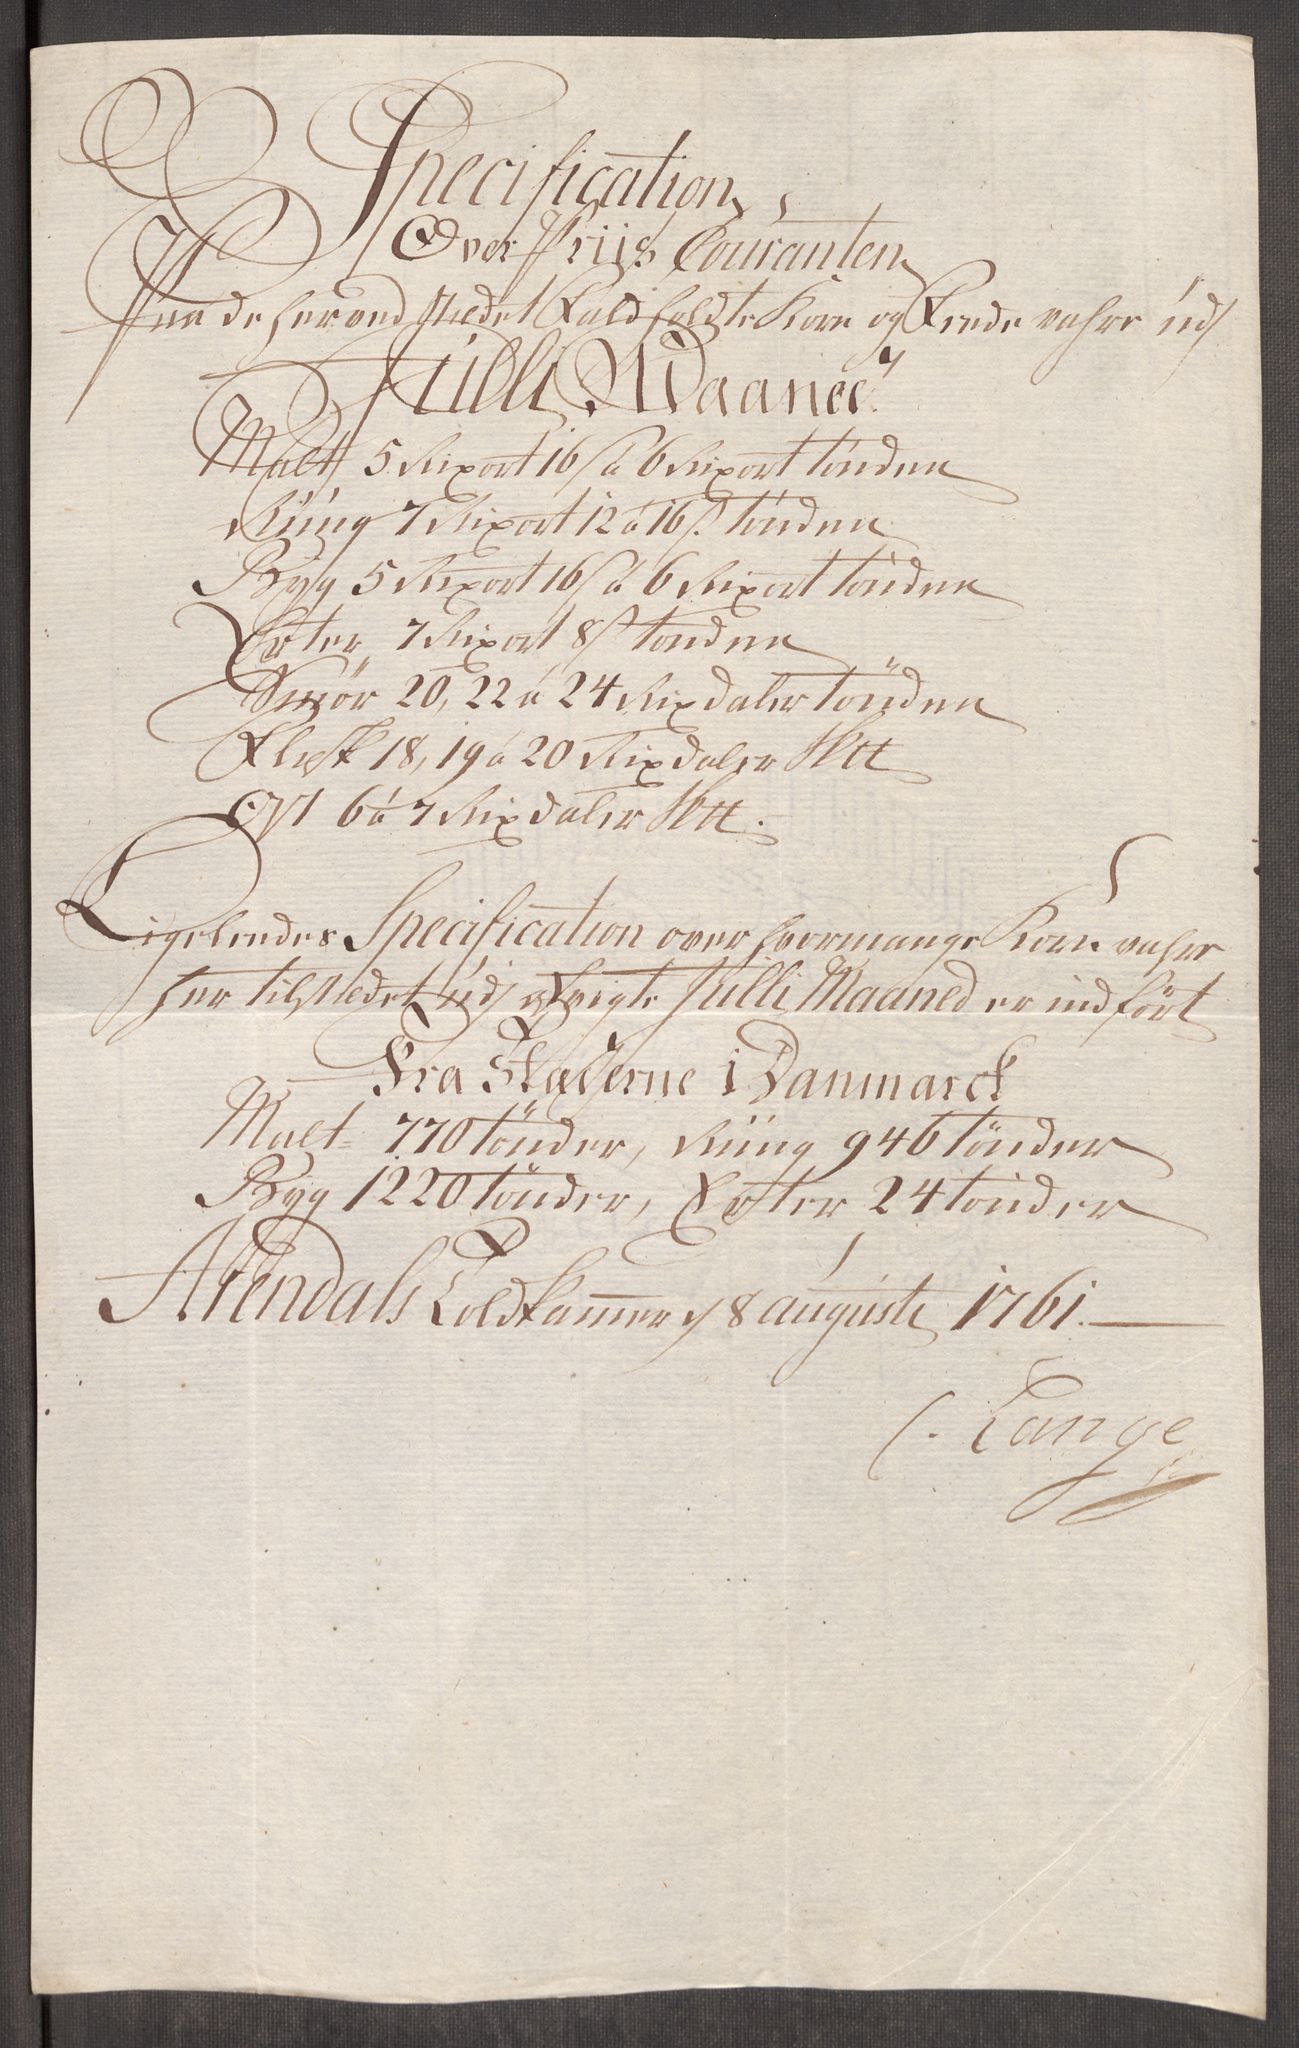 Specification
Over Priis Couranten
Paa de her ved Stædet Faldholdte Korn og Fede vahre udj
Julli Maaned.
Malt 5 Rixort 16 s a 6 Rixort tönden
Rüug 7 Rixort 12 a 16 s. tönden
Byg 5 Rixort 16 s a 6 Rixort tönden
Erter 7 Rixort 8 s tönden
Smör 20, 22 a 24 Rixdaler tönden
Flesk 18, 19 a 20 Rixdaler Sktt
Ost 6 a 7 Rixdaler Sktt.
Ligeleedes Specification over hvormange Korn vahre
her til Stædet udj afvigte Julli Maaned er indfört
Fra Stæderne i Danmarck
Malt 770 tönder, Rüug 946 tönder
Byg 1220 tönder, Erter 24 tönder
Arendals Toldkammer d 8 augusti 1761.
C. Lange